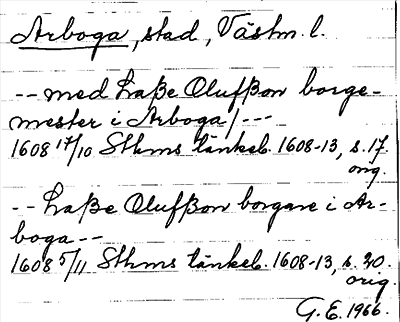 Arboga, stad, Västm. l.
-- med Laße Olufßon borge-
mester i Arboga / ---
1608 17/10 Sthms tänkeb. 1608-13, s. 17.
orig.
-- Laße Olufßon borgare i Ar-
boga --
1608 5/11 Sthms tänkeb. 1608-13, s. 30.
orig.
G. E. 1966.